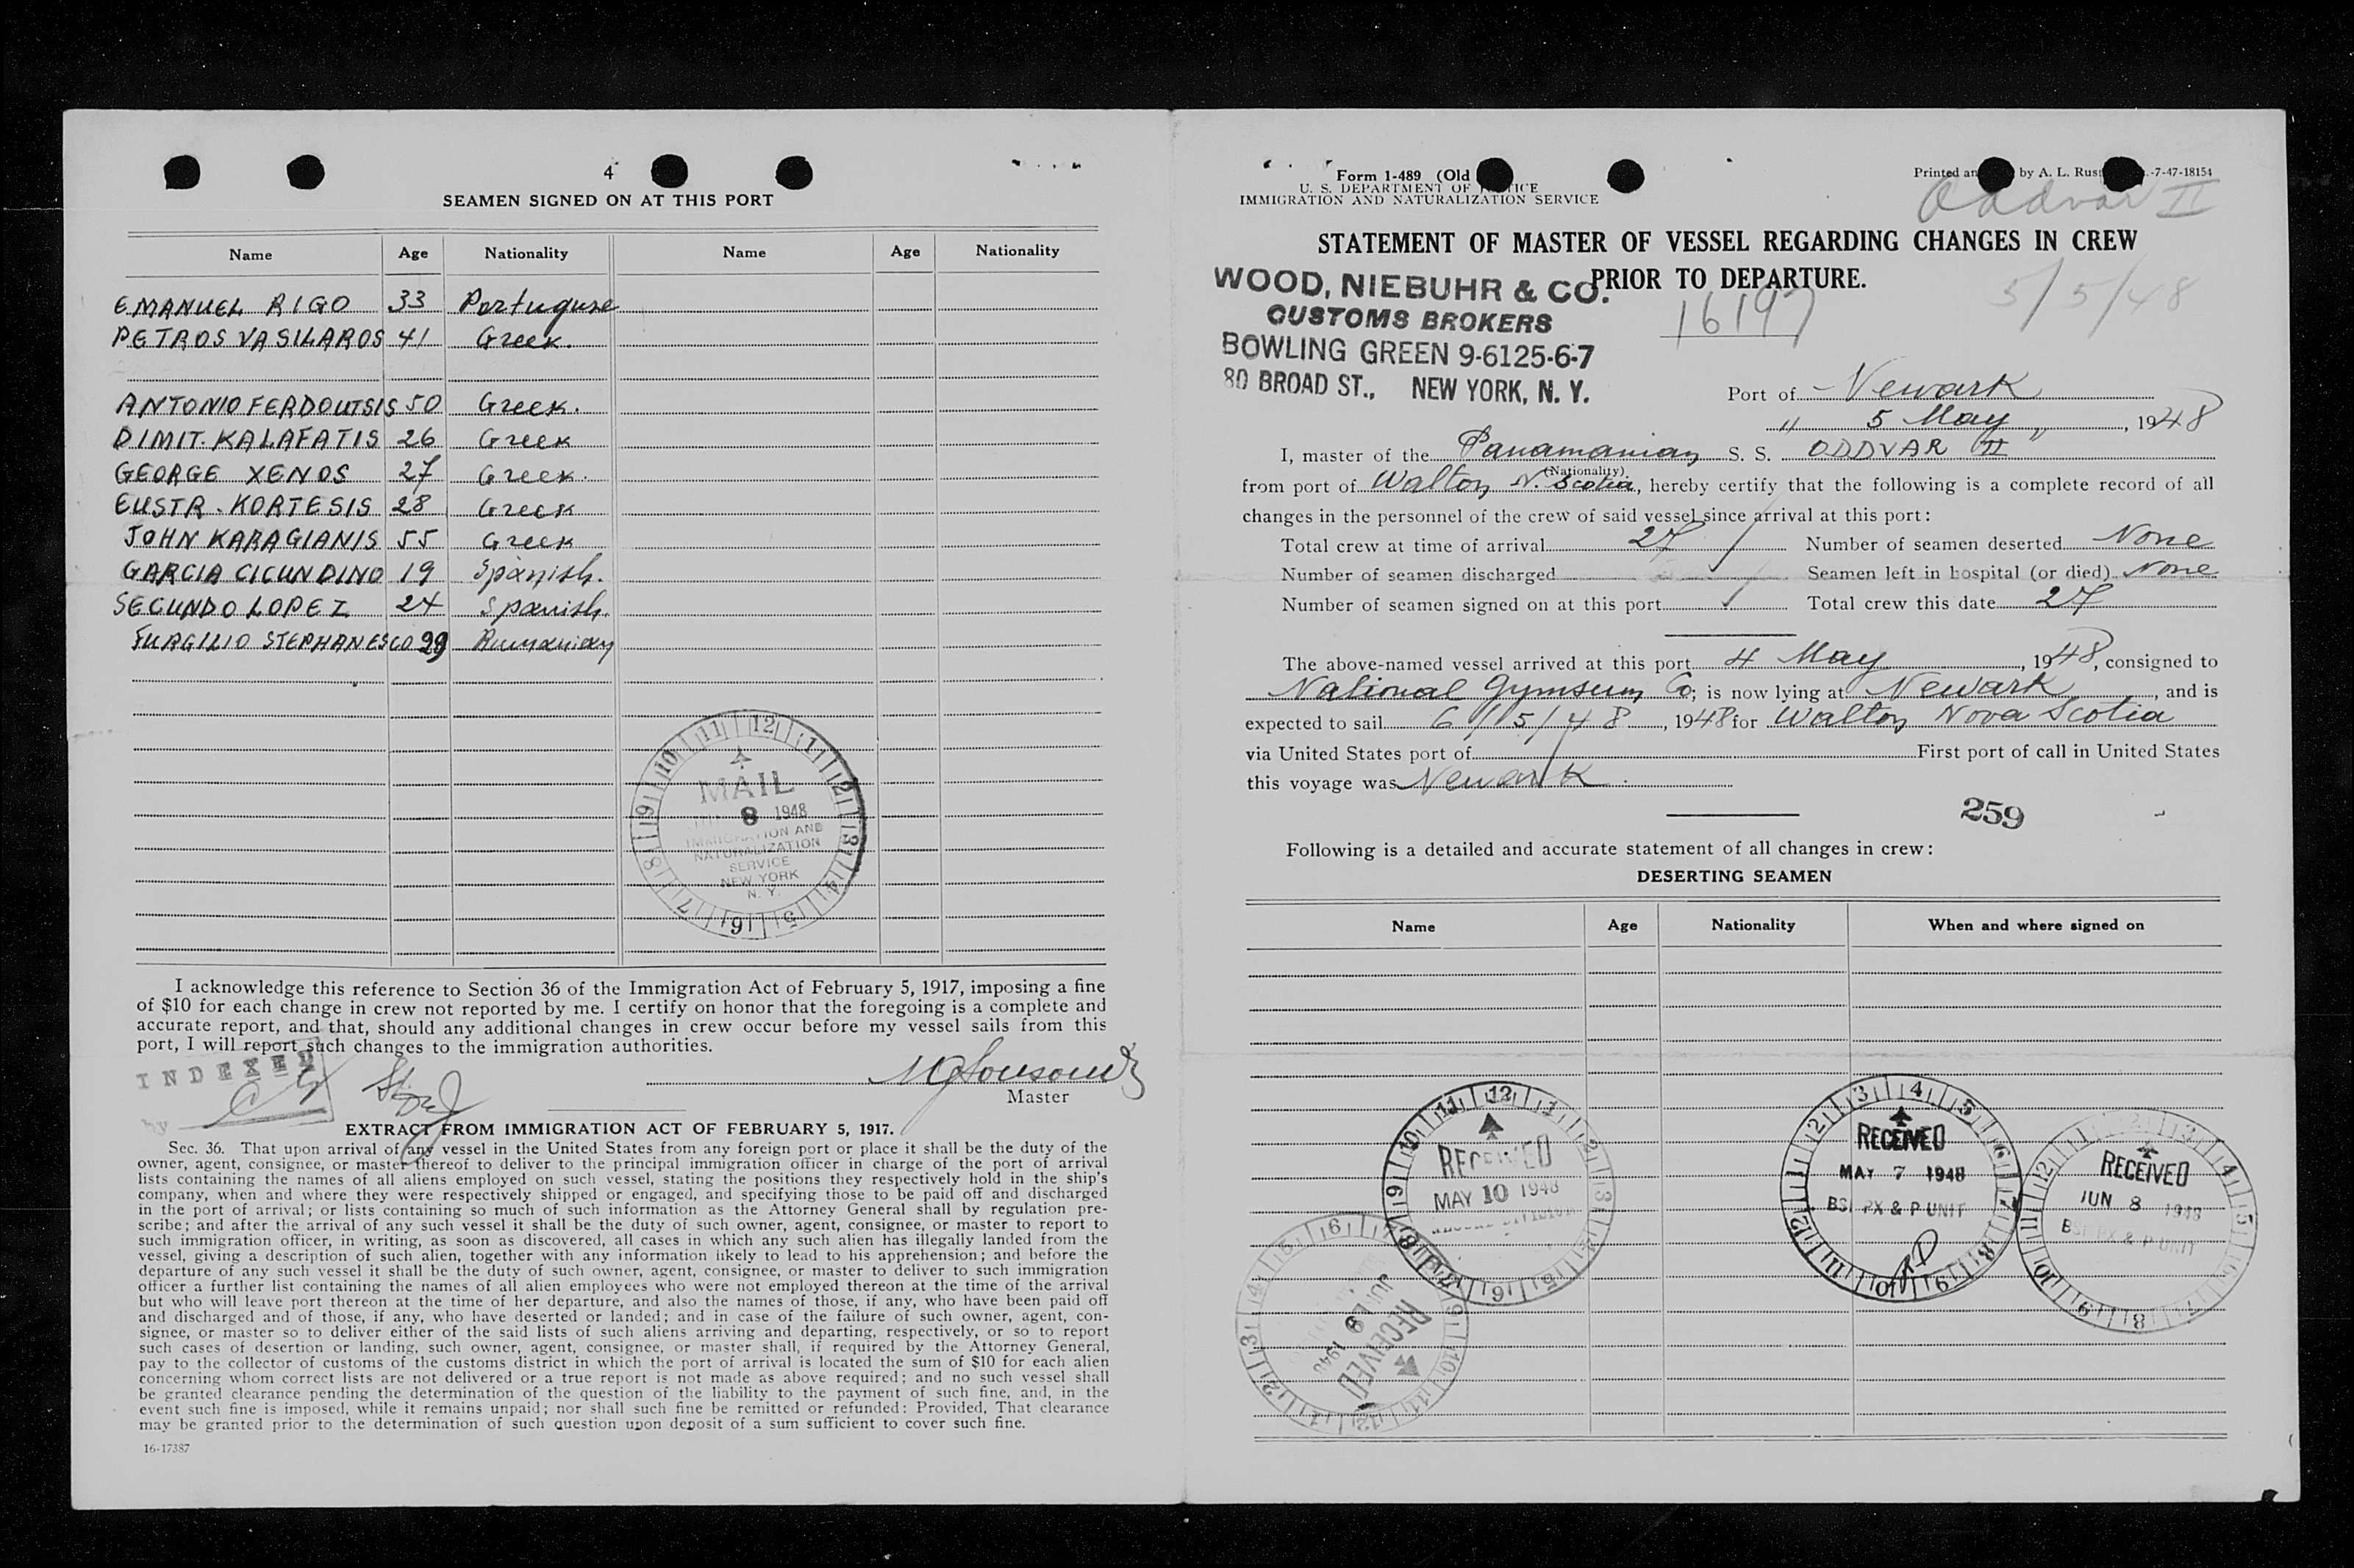 4
SEAMEN SIGNED ON AT THIS PORT
Name Age Nationality Name Age Nationality
EMANUEL RIGO 33 Portuguse
PETROS VASILAROS 41 Greek.
ANTONIO FERDOUTSIS 50 Greek.
DIMIT. KALAFATIS 26 Greek
GEORGE XENOS 27 Greek.
EUSTR. KORTESIS 28 Greek
JOHN KARAGIANIS 55 Greek
GARCIA CICUNDINO 19 Spanish.
SECUNDO LOPEZ 24 Spanish.
STEPHANESCO 29 Rumanian
12 1 2 3 4 5 6 7 8 9 10 11
MAIL
8 1948
IMMIGRATION AND
NATURALIZATION
SERVICE
NEW YORK
N. Y.
I acknowledge this reference to Section 36 of the Immigration Act of February 5, 1917, imposing a fine
of $10 for each change in crew not reported by me. I certify on honor that the foregoing is a complete and
accurate report, and that, should any additional changes in crew occur before my vessel sails from this
port, I will report such changes to the immigration authorities.
INDEXED
by
Master
EXTRACT FROM IMMIGRATION ACT OF FEBRUARY 5, 1917.
Sec. 36. That upon arrival of any vessel in the United States from any foreign port or place it shall be the duty of the
owner, agent, consignee, or master thereof to deliver to the principal immigration officer in charge of the port of arrival
lists containing the names of all aliens employed on such vessel, stating the positions they respectively hold in the ship's
company, when and where they were respectively shipped or engaged, and specifying those to be paid off and discharged
in the port of arrival; or lists containing so much of such information as the Attorney General shall by regulation pre-
scribe; and after the arrival of any such vessel it shall be the duty of such owner, agent, consignee, or master to report to
such immigration officer, in writing, as soon as discovered, all cases in which any such alien has illegally landed from the
vessel, giving a description of such alien, together with any information likely to lead to his apprehension; and before the
departure of any such vessel it shall be the duty of such owner, agent, consignee, or master to deliver to such immigration
officer a further list containing the names of all alien employees who were not employed thereon at the time of the arrival
but who will leave port thereon at the time of her departure, and also the names of those, if any, who have been paid off
and discharged and of those, if any, who have deserted or landed; and in case of the failure of such owner, agent, con-
signee, or master so to deliver either of the said lists of such aliens arriving and departing, respectively, or so to report
such cases of desertion or landing, such owner, agent, consignee, or master shall, if required by the Attorney General,
pay to the collector of customs of the customs district in which the port of arrival is located the sum of $10 for each alien
concerning whom correct lists are not delivered or a true report is not made as above required; and no such vessel shall
be granted clearance pending the determination of the question of the liability to the payment of such fine, and, in the
event such fine is imposed, while it remains unpaid; nor shall such fine be remitted or refunded: Provided, That clearance
may be granted prior to the determination of such question upon deposit of a sum sufficient to cover such fine.
16-17387
Form 1-489 (Old
U. S. DEPARTMENT OF JUSTICE
IMMIGRATION AND NATURALIZATION SERVICE
Printed an by A. L. Rus -7-47-18154
Oddvar II
STATEMENT OF MASTER OF VESSEL REGARDING CHANGES IN CREW
PRIOR TO DEPARTURE.
WOOD, NIEBUHR & CO.
CUSTOMS BROKERS
BOWLING GREEN 9-6125-6-7
80 BROAD ST., NEW YORK, N. Y.
16197
5/5/48
Port of Newark
" 5 May ", 1948
I, master of the Panamanian S. S. ODDVAR II
(Nationality)
from port of Walton N. Scotia, hereby certify that the following is a complete record of all
changes in the personnel of the crew of said vessel since arrival at this port:
Total crew at time of arrival 27 Number of seamen deserted None
Number of seamen discharged Seamen left in hospital (or died) None
Number of seamen signed on at this port Total crew this date 27
The above-named vessel arrived at this port 4 May, 1948, consigned to
National Gymseum Co; is now lying at Newark, and is
expected to sail 6/5/48, 1948 for Walton Nova Scotia
via United States port of First port of call in United States
this voyage was Newark.
259
Following is a detailed and accurate statement of all changes in crew:
DESERTING SEAMEN
Name Age Nationality When and where signed on
RECEIVED
MAY 10 1948
RECEIVED
MAY 7 1948
BSI PX & P UNIT
RECEIVED
JUN 8 1948
BSI PX & P UNIT
RECEIVED
JUN 9 1948